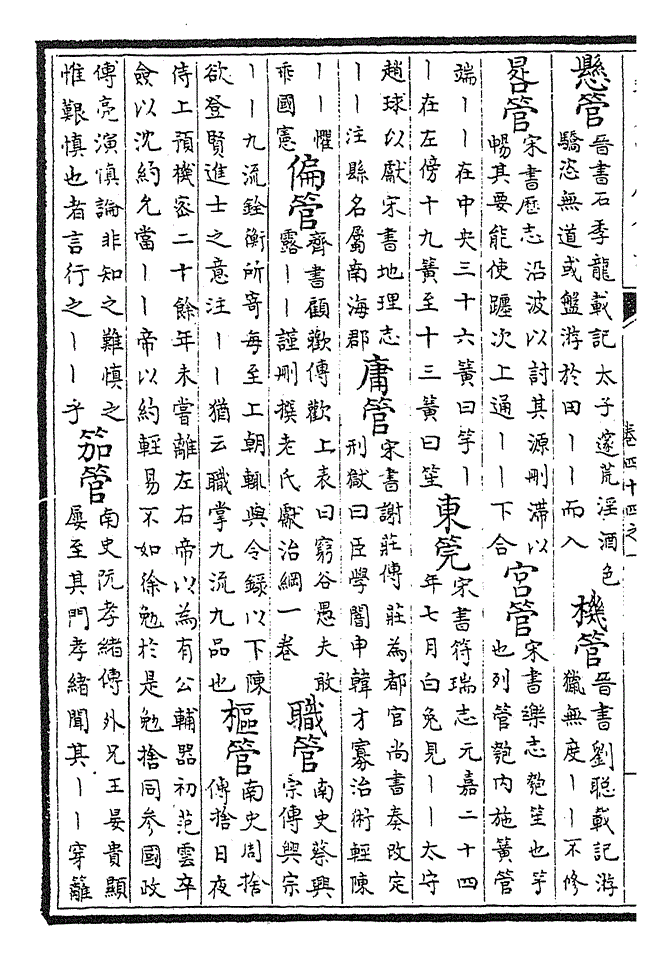 卷四十四之一
懸管
晉書石季龍載記太子邃荒淫酒色
驕恣無道或盤游於田丨丨而入
機管
晉書劉聰載記游
獵無度丨丨不修
晷管
宋書歷志沿波以討其源刪滯以
暢其要能使躔次上通丨丨下合
宮管
宋書樂志匏笙也竽
也列管匏内施簧管
端丨丨在中央三十六簧曰竽丨
丨在左傍十九簧至十三簧曰笙
東筦
宋書符瑞志元嘉二十四
年七月白兔見丨丨太守
趙球以獻宋書地理志
丨丨注縣名屬南海郡
庸管
宋書謝莊傳莊為都官尚書奏改定
刑獄曰臣學闇申韓才寡治術輕陳
丨丨懼
乖國憲
偏管
齊書顧歡傳歡上表曰窮谷愚夫敢
露丨丨謹刪撰老氏獻治綱一卷
職管
南史蔡興
宗傳興宗
丨丨九流銓衡所寄每至上朝輒與令錄以下陳
欲登賢進士之意注丨丨猶云職掌九流九品也
樞管
南史周捨
傳捨日夜
侍上預機密二十餘年未嘗離左右帝以為有公輔器初范雲卒
僉以沈約允當丨丨帝以約輕易不如徐勉於是勉捨同參國政
傅亮演慎論非知之難慎之
惟艱慎也者言行之丨丨乎
笳管
南史阮孝緒傳外兄王晏貴顯
屢至其門孝緒聞其丨丨穿籬